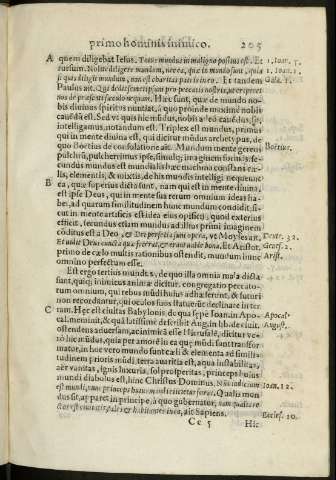 primo hominis inimico. 205
A quem diligebat Iesus. Totus mundus in maligno positus est. Et 1. Ioan. 5.
rursum. Nolite diligere mundum, neque ea, quæ in mundo sunt, quia 1. Ioan. 2.
si quis diligit mundum, non est charitas patris in eo. Et tandem Gala. 1.
Paulus ait. Qui dedit semetipsum pro peccatis nostris, ut eriperet
nos de præsenti sæculo nequam. Hæc sunt, quæ de mundo no-
bis diuinus spiritus nuntiat, quo à probrosa mundi fœce nobis
caueamus. Sed ut quis hic mundus, nobis à quo caueamus, sit,
intelligamus, notandum est. Triplex est mundus, primus
qui in mente diuina est, qui dicitur mundus archetypus, de
quo Boëtius de consolatione ait. Mundum mente gerens Boetius.
pulchrū, pulcherrimus ipse, similiq; imagine formās. se-
cundus mundus est mundialis hæc machina constans cæ-
lis, elementis, & mixtis, de his mundis intelligi neque unt
B ea, quæ superius dicta sunt, nam qui est in mente diuina,
est ipse Deus, qui in mente sua rerum omnium ideas ha-
bet, ad quarum similitudinem hunc mundum condidit, si-
cut in mente artificis est idea eius opificij, quod exterius
efficit, secundus etiam mundus ad illius primi imaginem
cōditus est à Deo, & Dei perfecta sunt opera, vt Moyses ait. Deutr. 32.
Et vidit Deus cuncta quæ fecerat, & erant valde bona. Et Aristot. Genes. 2.
primo de cælo multis rationibus ostendit, mundum hunc Arist.
omnino perfectum esse.
Est ergo tertius mundus, de quo illa omnia mala dicta
sunt, quiq; inimicus animæ dicitur. congregatio peccato-
rum omnium, qui rebus mūdi huius adhæserunt, & futuri
non recordantur, qui oculos suos statuerūt declinare in ter
C ram. Hęc est ciuitas Babylonis de qua sępe Ioan. in Apo- Apocal.
cal. meminit, & quā latissimè describit Aug. in lib. de ciuit. August.
ostendens aduersam, ac inimicā esse Hierusalē, dicitur ve-
rò hic mūdus, quia per amorē in ea quę mūdi sunt transfor
matur, in hoc vero mundo sunt cæli & elementa ad simili-
tudinem prioris mūdi, terra auaritia est, aqua instabilitas,
aër vanitas, ignis luxuria, sol prosperitas, princeps huius
mundi diabolus est, hinc Christus Dominus. Nūc iudicium Ioan. 12.
est mundi, nunc princeps huius mundi eiicietur foras. Qualis mun
dus sit, patet in principe, à quo gubernatur, nam qualis re
ctor est ciuitatis, tales & habitantes in ea, ait Sapiens. Eccles. 10.
Cc 5 Hic